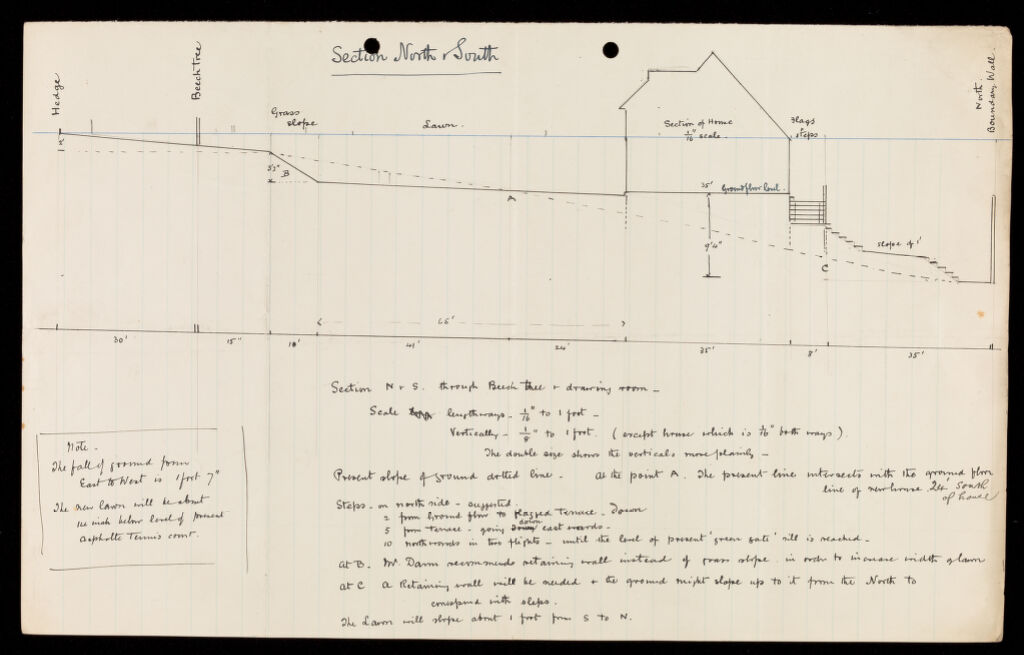 Section North & South
Hedge
Beech Tree
Grass
slope
Lawn.
Section of House
1/16" scale
Flags
& steps
North
Boundary Wall
2'
5'3"
B
A
35' Ground floor level.
9'4"
C
slope of 1'
65'
30'
15"
10'
41'
24'
35'
8'
35'
Section N & S. through Beech tree & drawing room -
Scale lengthways - 1/16" to 1 foot -
Vertically - 1/8" to 1 foot. (except house which is 1/16" both ways).
The double size shows the verticals more plainly -
Present slope of ground dotted line. At the point A. The present line intersects with the ground floor
line of new house 24' South
of house
Steps - on north side - suggested.
2 from Ground floor to flagged terrace. Down
5 from terrace - going down east wards -
10 northwards in two flights - until the level of present 'green gate' sill is reached -
At B. Mr recommends retaining wall instead of grass slope in order to increase width of lawn
At C A Retaining wall will be needed & the ground might slope up to it from the North to
correspond with steps.
The Lawn will slope about 1 foot from S to N.
Note -
The fall of ground from
East to West is 1 foot 7"
The new lawn will be about
inch below level of present
Asphalte Tennis court.